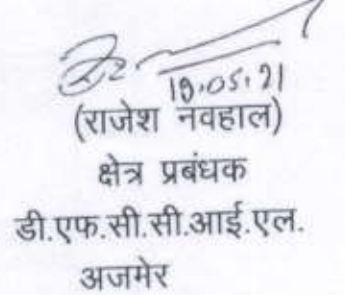 19.05.21
(राजेश नवहाल)
क्षेत्र प्रबंधक
डी.एफ.सी.सी.आई.एल.
अजमेर